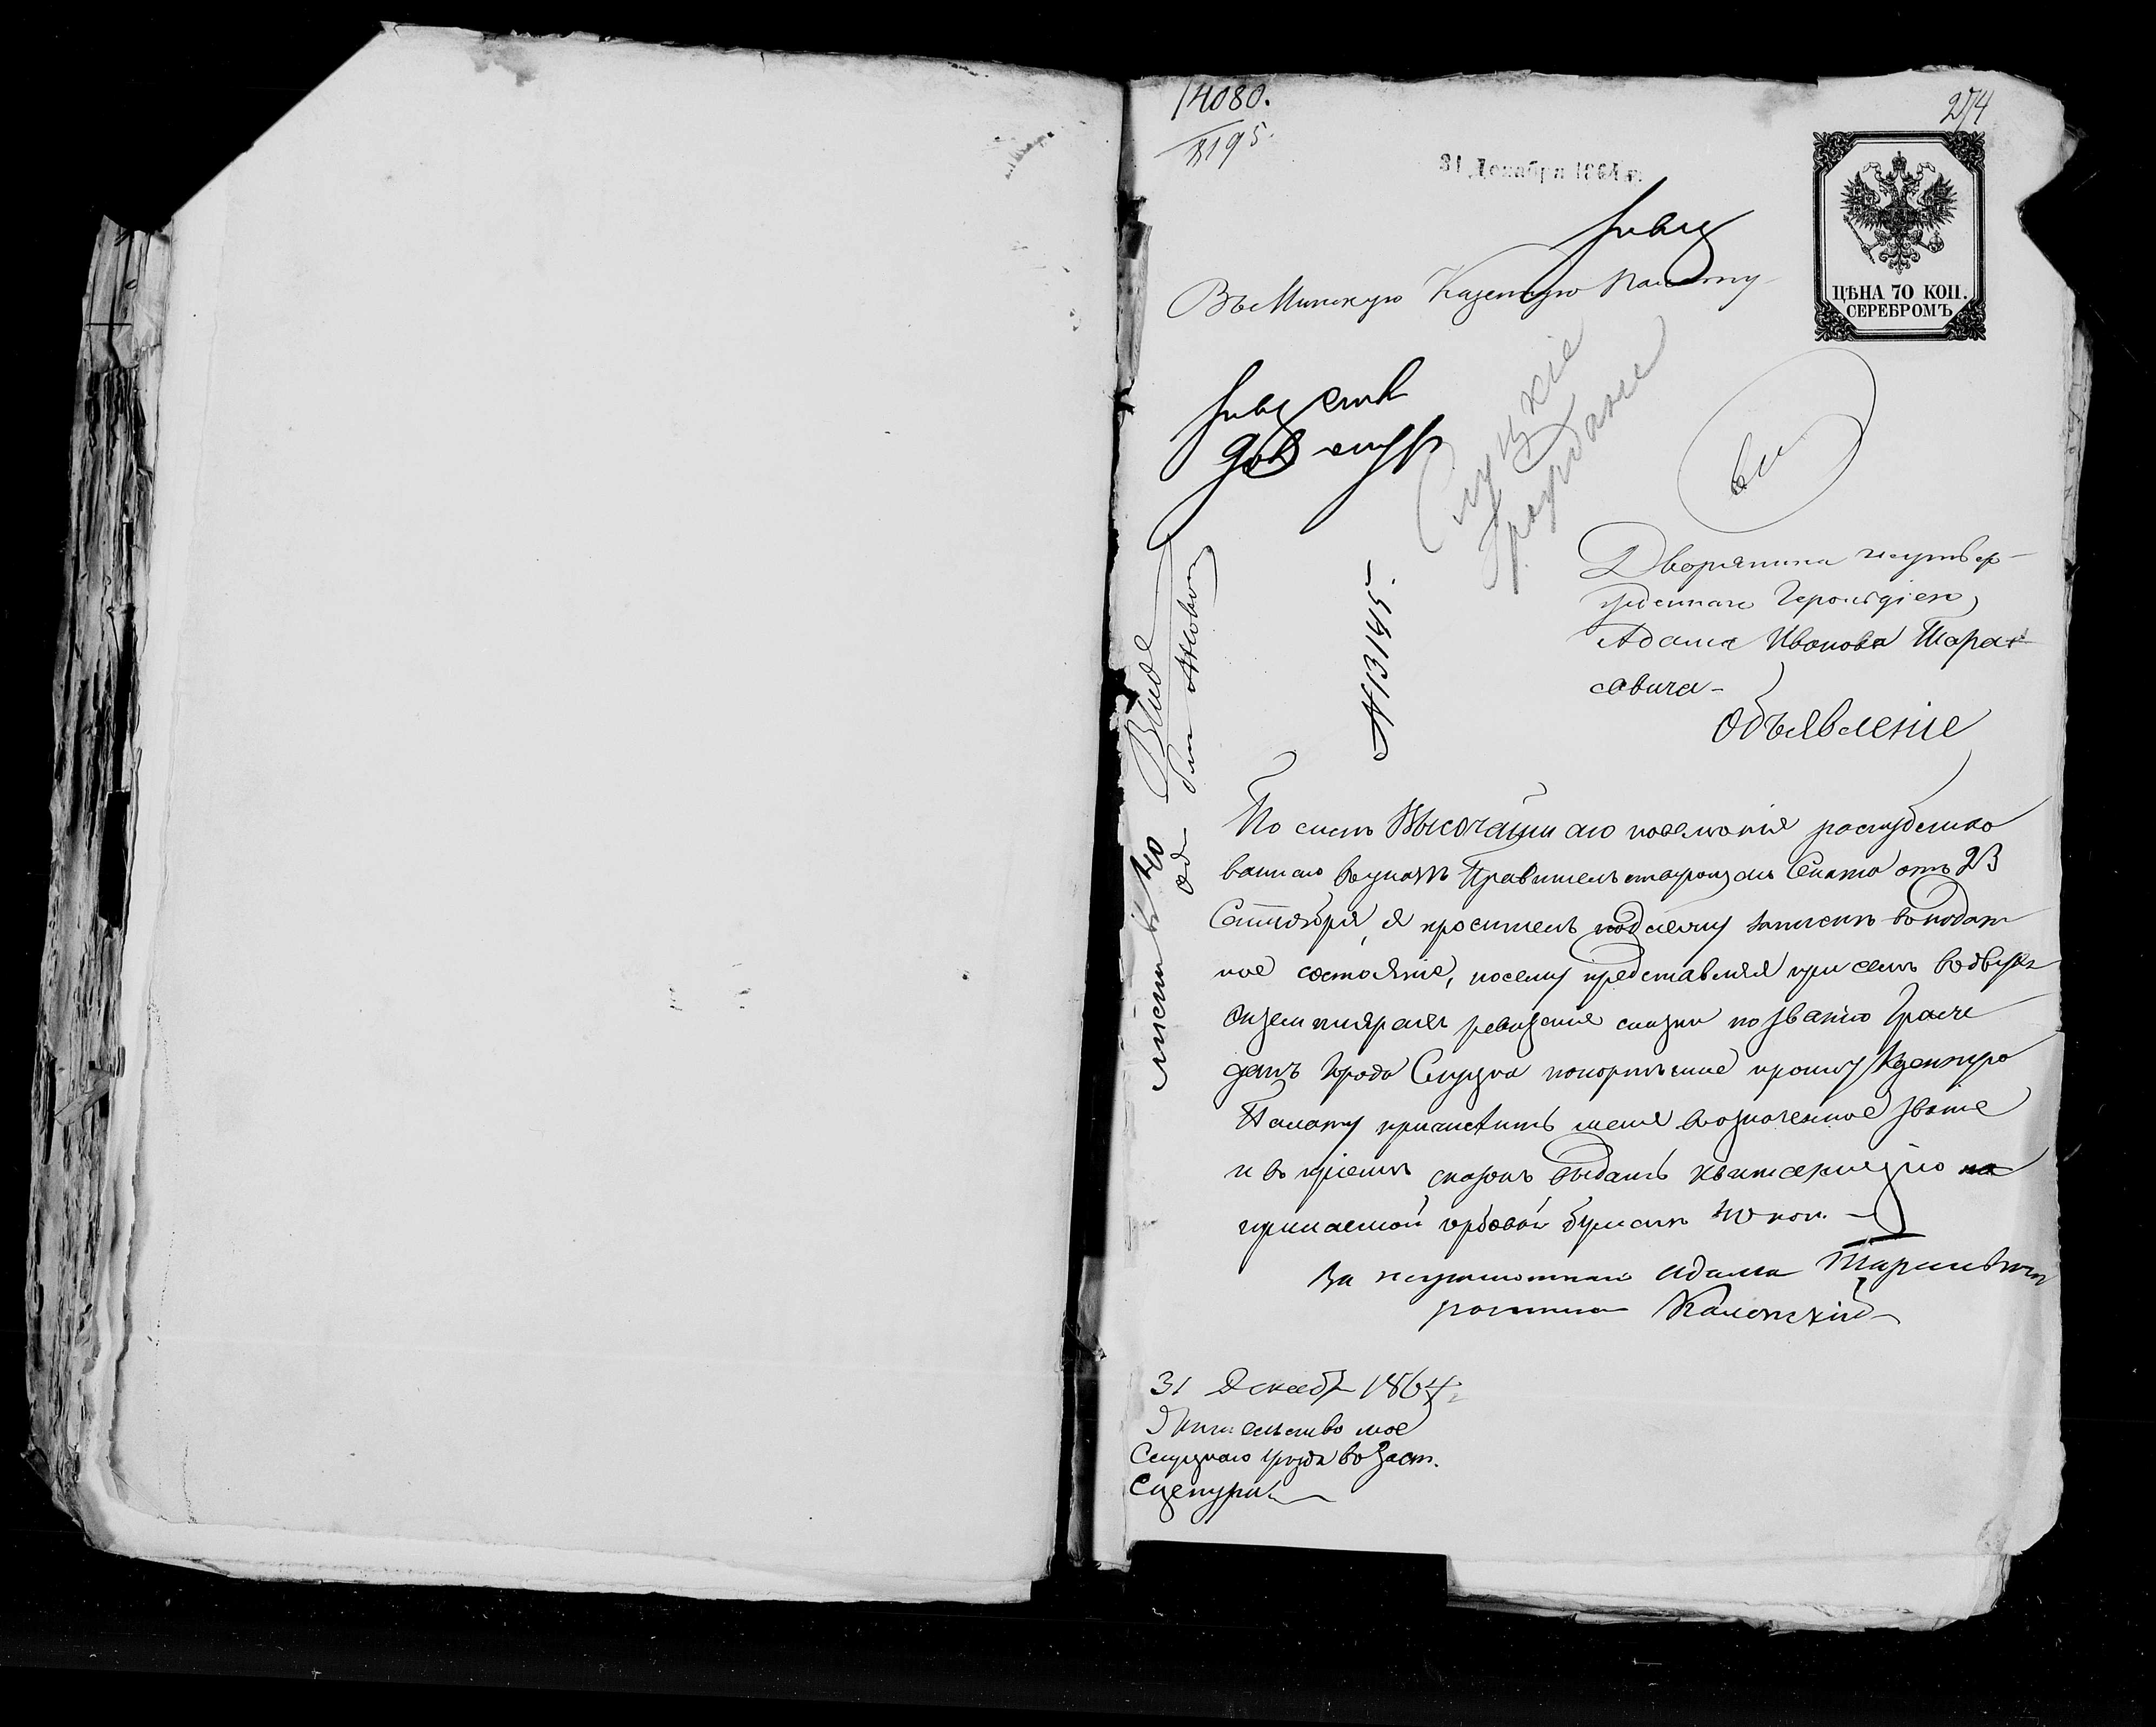 14080.
8195.
274
31 Декабря 1864 г.
ЦѢНА 70 КОП.
СЕРЕБРОМЪ
Въ Минскую Казенную Палату
Слуцкіе
граждане
№ 13145.
Дворянина неутвер-
жденнаго Герольдіею
Адама Иванова Тара-
севича-
Объявленіе
По силѣ Высочайшаго повеленія распублико
ваннаго въ указѣ Правительствующаго Сената отъ 23
Сентября, я проситель подлежу записки въ подат
ное состояніе, посему представляя при семъ въ двухъ
экземплярахъ ревизскіе сказки по званію Граж
данъ города Слуцка покорнѣйше прошу Казенную
Палату причислить меня въ означенное званіе
и въ пріемѣ сказокъ выдать квитанцію на
прилагаемой гербовой бумагѣ 40 коп. -
За неграмотнаго Адама Тарасевича
Каменскій
31 Декабр 1864 г.
Жительство мое
Слуцкаго уѣзда въ Заст.
листъ въ 40